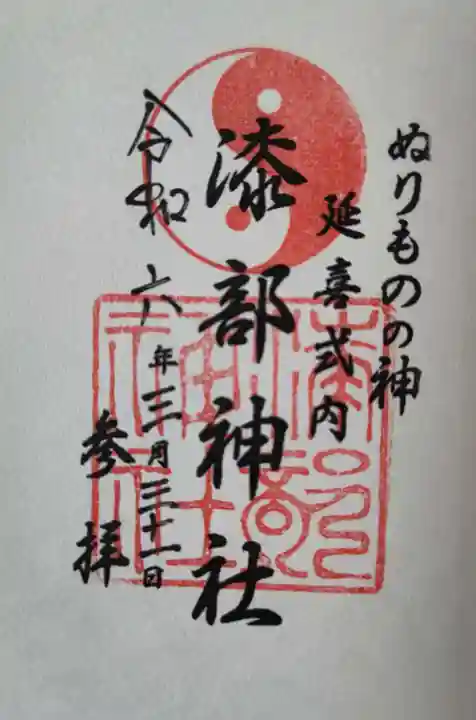 ぬりものの神
延喜式内
漆部神社
令和六年三月三十一日
参拝
漆部神社